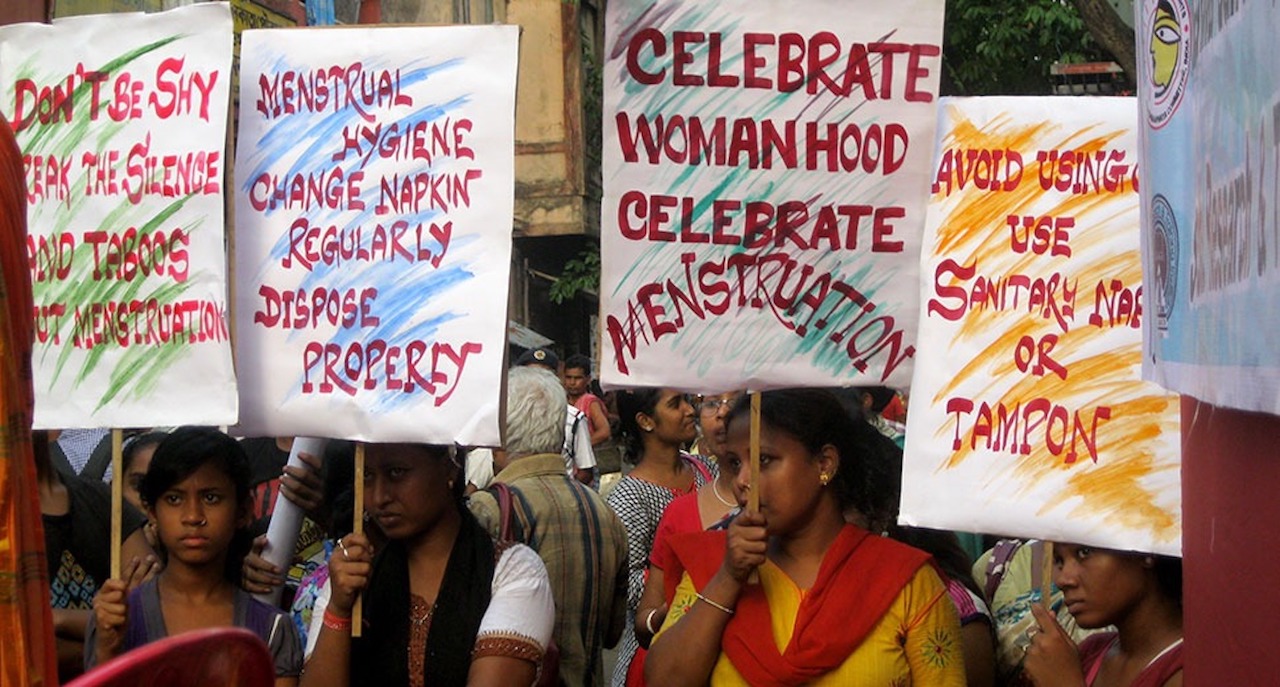 DON'T BE SHY
REAK THE SILENCE
AND TABOOS
OUT MENSTRUATION
MENSTRUAL
HYGIENE
CHANGE NAPKIN
REGULARLY
DISPOSE
PROPERLY
CELEBRATE
WOMANHOOD
CELEBRATE
MENSTRUATION
AVOID USING
USE
SANITARY NAP
OR
TAMPON